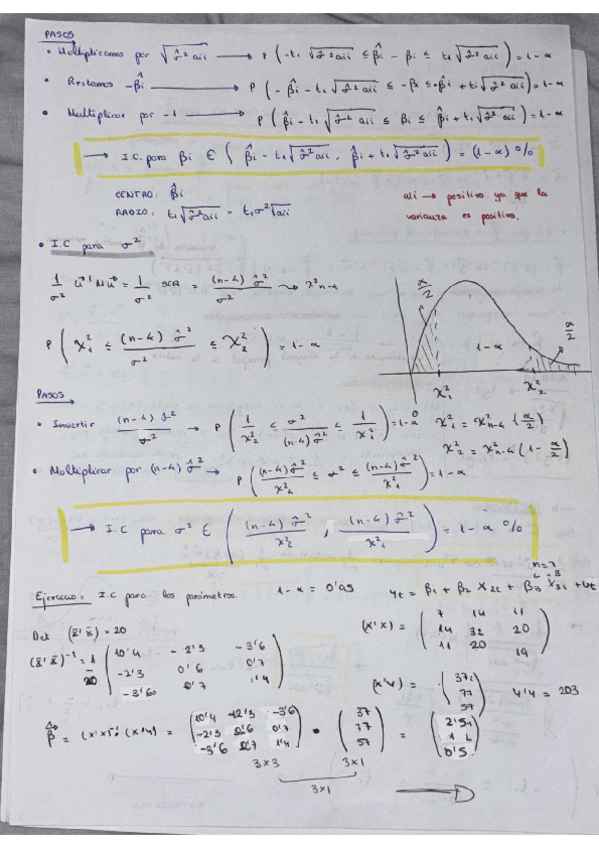 PASOS
• Multiplicamos por √(σ̂² aii) → P(-t₁ √(σ̂² aii) ≤ β̂i - βi ≤ t₁ √(σ̂² aii)) = 1-α
• Restamos -β̂i → P(-β̂i - t₁ √(σ̂² aii) ≤ -βi ≤ -β̂i + t₁ √(σ̂² aii)) = 1-α
• Multiplicar por -1 → P(β̂i - t₁ √(σ̂² aii) ≤ βi ≤ β̂i + t₁ √(σ̂² aii)) = 1-α
→ I.C. para βi ∈ (β̂i - t₁ √(σ̂² aii), β̂i + t₁ √(σ̂² aii)) = (1-α) %
CENTRO: β̂i
RADIO: t₁ √(σ̂² aii) - t₁ σ² √aii
aii → positivo ya que la
varianza es positiva.
• I.C para σ²
1/σ² û'Mû = 1/σ² SCR = (n-k) σ̂²/σ² → χ²n-k
P(χ²₁ ≤ (n-k) σ̂²/σ² ≤ χ²₂) = 1-α
α/2 1-α α/2
χ²₁ χ²₂
PASOS
• Invertir (n-k) σ̂²/σ² → P(1/χ²₂ ≤ σ²/(n-k) σ̂² ≤ 1/χ²₁) = 1-α
χ²₁ = χ²n-k (α/2)
χ²₂ = χ²n-k (1-α/2)
• Multiplicar por (n-k) σ̂² → P((n-k) σ̂²/χ²₂ ≤ σ² ≤ (n-k) σ̂²/χ²₁) = 1-α
→ I.C para σ² ∈ ((n-k) σ̂²/χ²₂ , (n-k) σ̂²/χ²₁) = 1-α %
n=7
Ejercicio: I C para los parámetros. 1-α = 0'95 Yt = β₁ + β₂ X₂t + β₃ X₃t + Ut
Det (x̄'x̄) = 20
(x'x) = (7 14 11
14 32 20
11 20 19)
(x̄'x̄)⁻¹ = 1/20 (10'4 -2'3 -3'6
-2'3 0'6 0'7
-3'6 0'7 1'4)
(x'y) = (37
77
57)
y'y = 203
β̂ = (x'x)⁻¹ · (x'y) = (10'4 -2'3 -3'6
-2'3 0'6 0'7
-3'6 0'7 1'4) · (37
77
57) = (2'5
0'5)
3x3 3x1
3x1